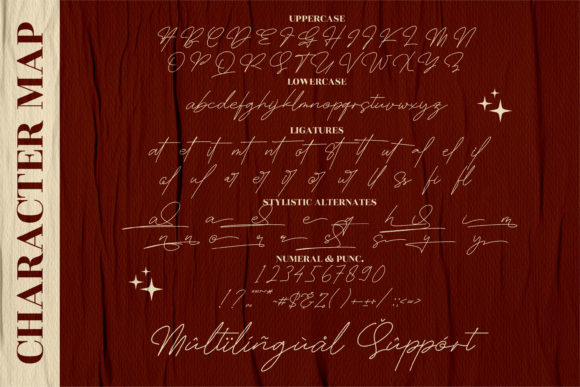 CHARACTER MAP
UPPERCASE
A B C D E F G H I J K L M N
O P Q R S T U V W X Y Z
LOWERCASE
abcdefghijklmnopqrstuvwxyz
LIGATURES
at et it mt nt ot st it ut al el il
ol ul ar er ir or ur ll ss fi fl
STYLISTIC ALTERNATES
NUMERAL & PUNC.
1234567890
Mûltïlíñgùål Šûppórt